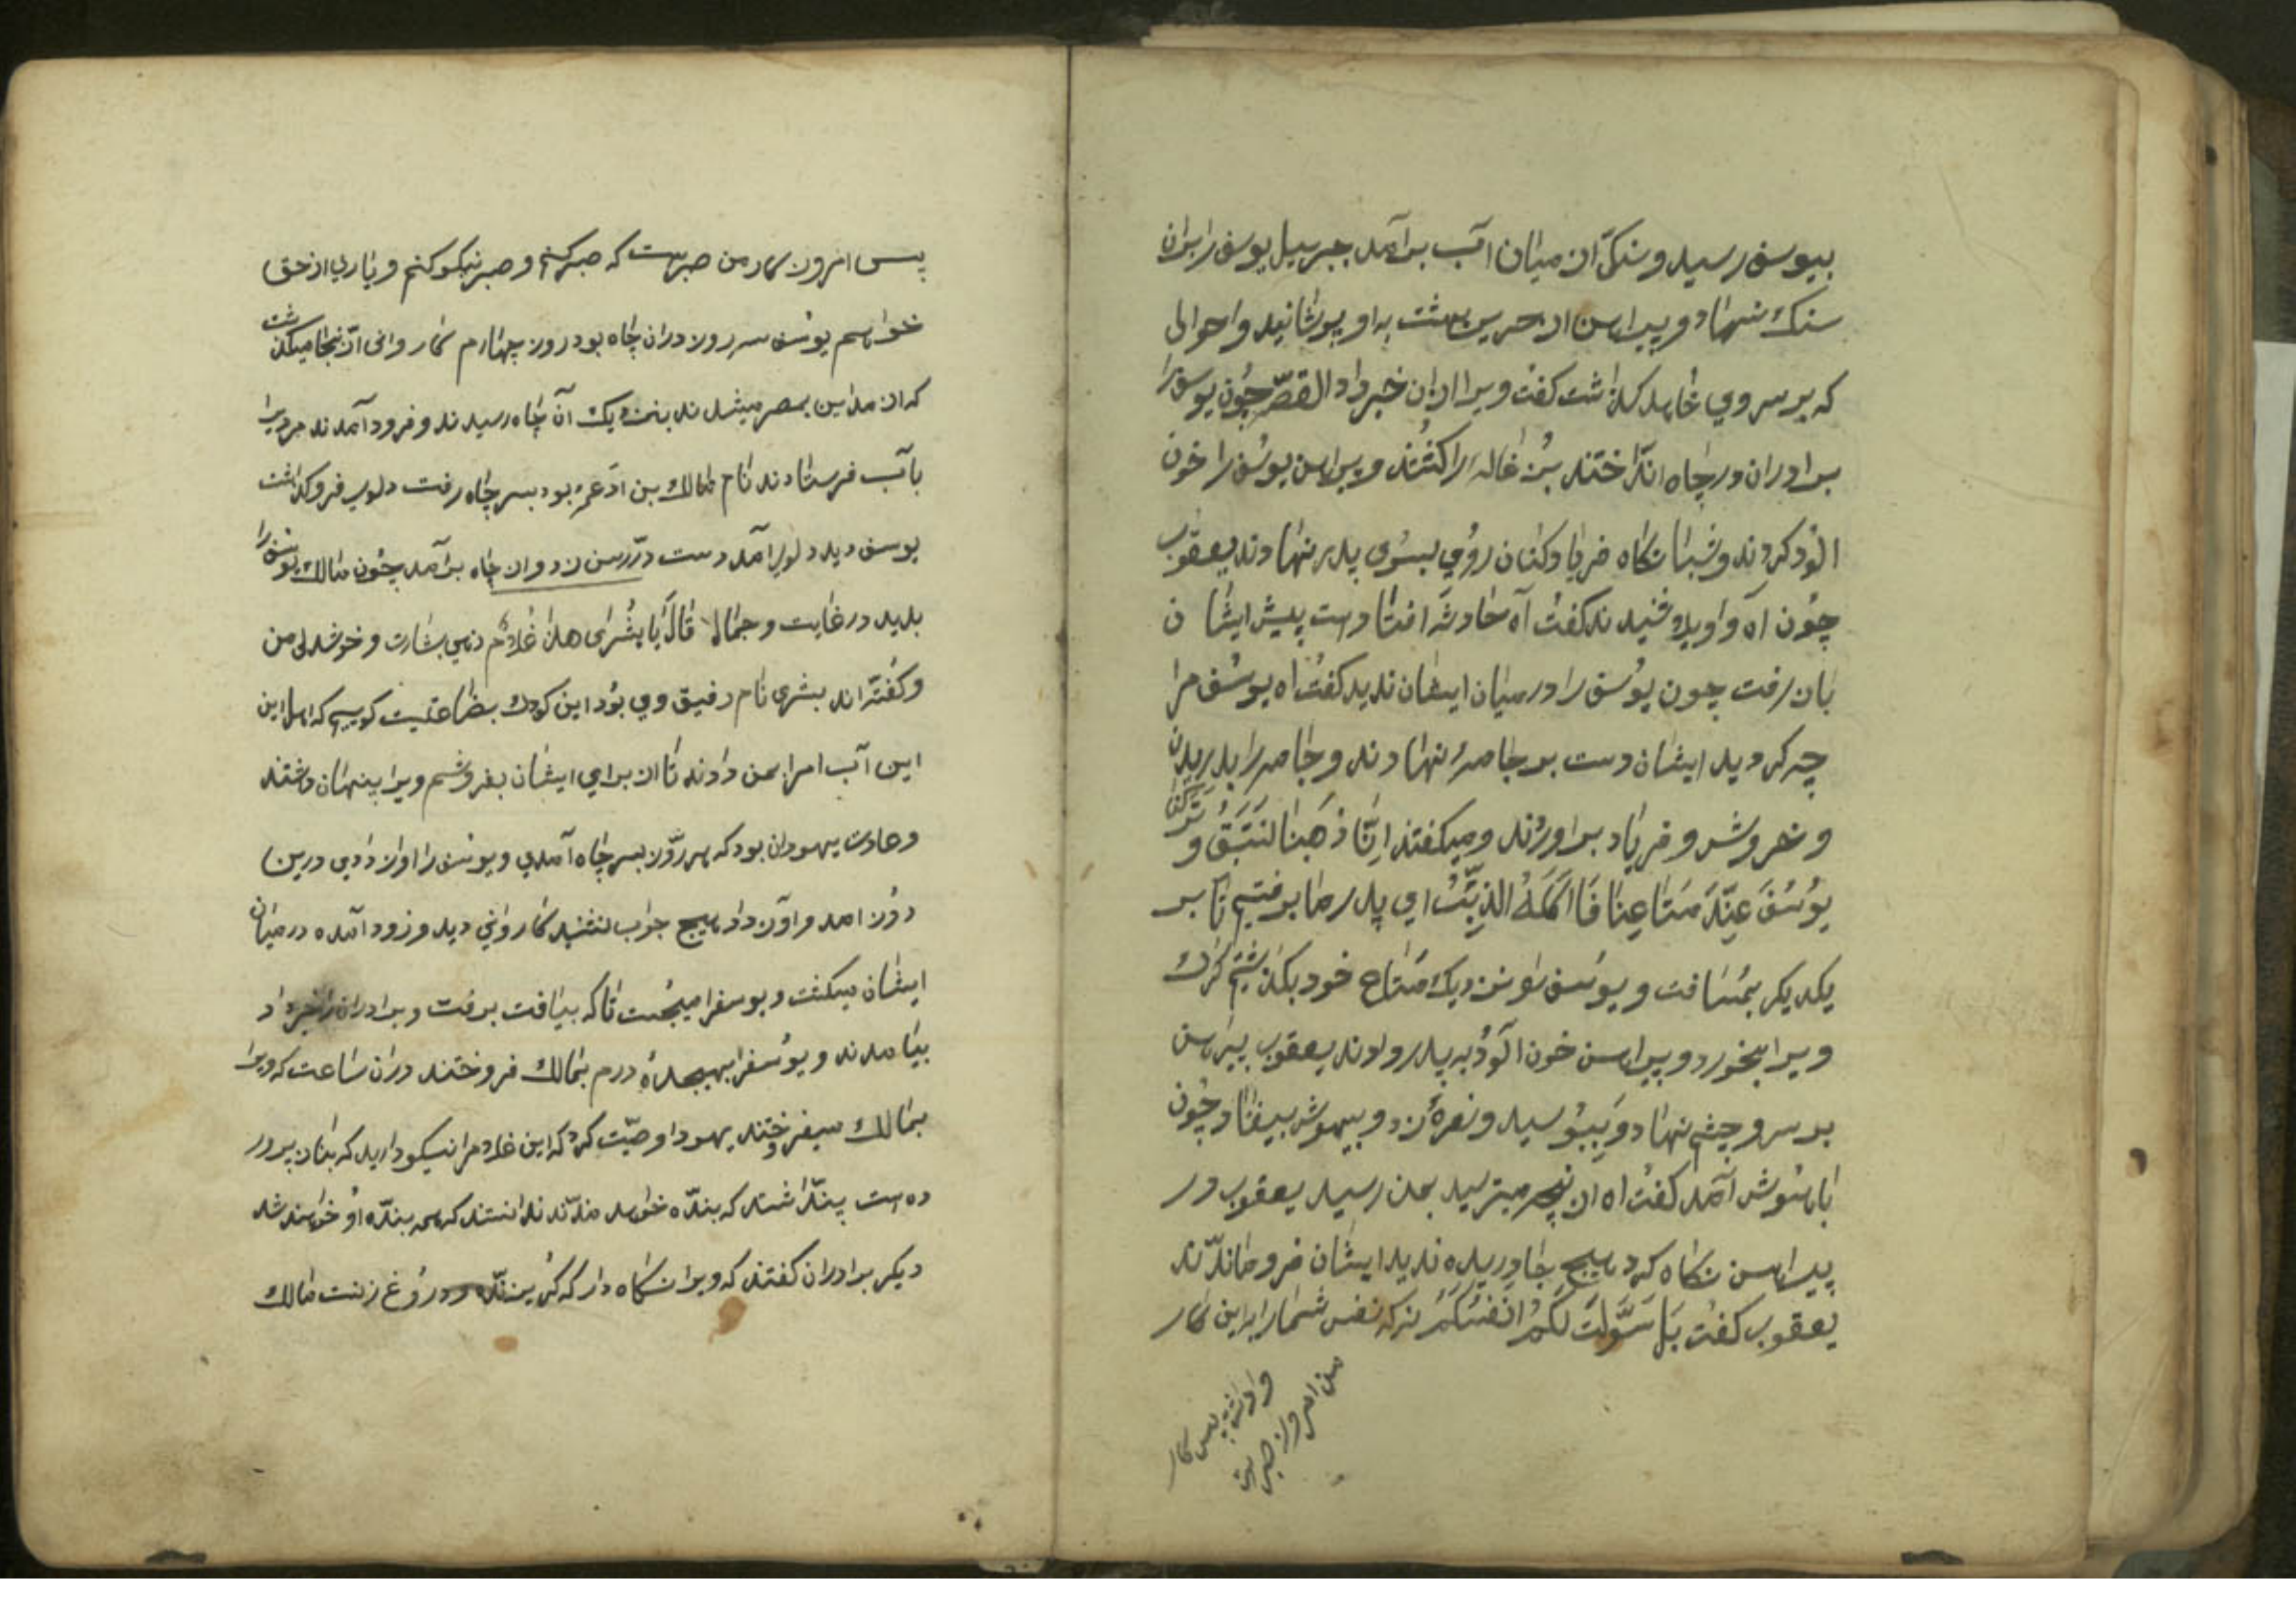 بیوسف رسید و سنکی از میان آب برآمد جبرییل یوسف را بران
سنک نهاد و پیراهن از حریر بهشت به او پوشانید و احوالی
که بر سر وی خاهد کذاشت کفت ویرا ازان خبر داد القصّه چون یوسفرا
برادران در چاه انداختند بزغاله را کشتند و پیراهن یوسف را خون
الود کردند و شبانکاه فریاد کنان روی بسوی پدر نهادند یعقوب
چون آه و اویلا شنید کفت آه حادثه افتادست پیش ایشان
باز رفت چون یوسف را در میان ایشان ندید کفت اه یوسف مرا
چه کردید ایشان دست بر جامه نهادند و جامه را بدریدن
و خروش و فریاد براوردند و میکفتند اِنّا ذَهَبنا لنَتَبِقُ و تَرَکنا
یوُسُفَ عِندَ مَتاعِنا فَاَکَلَهُ الذِّئبُ ای پدر ما برفتیم تا بر
یکدیکر بمسافت و یوسف نزدیک متاع خود بکذاشتیم کرک
ویرا بخورد و پیراهن خون الود به پدر دادند یعقوب پیراهن
بر سر و چشم نهاد و ببوسید و نعره زد و بیهوش بیفتاد چون
باهوش آمد کفت اه از نچه میترسید بمن رسید یعقوب در
پیراهن نکاه کرد هیچ جا دریده ندید ایشان فرو ماندند
یعقوب کفت بَل سَوَّلَت لَکُم اَنفُسُکُم نه که نفس شما را براین کار
واداشته پس کار
من امروز صبرست
پس امروز کار من صبرست که صبر کنم و صبر نیکو کنم و یاری از حق
خواهم یوسف سه روز دران چاه بود روز چهارم کاروانی ازنجا میکذشت
که از مداین بمصر میشدند بنزدیک آن چاه رسیدند و فرود آمدند مردیرا
بآب فرستادند نام مالک بن ادعمر بود بسر چاه رفت دلوی فروکذاشت
یوسف دید دلو آمد دست در رسن زد و از چاه برآمد چون مالک یوسف را
بدید در غایت و جمالا قالَ یا بُشری هذا غلام زهی بشارت و خوشدلی من
و کفته اند بشری نام رفیق وی بود این کودک بضاعتیت کوییم که اهل این
این آب امرا بمن دادند تا از برای ایشان بفروشم ویرا پنهان داشتند
و عادت یهودان بود که هر روز بسر چاه آمدی و یوسف را اواز دادی درین
روز امد و اواز داد هیچ جواب نشنید کاروانی دید فرود آمده در میان
ایشان میکشت و یوسفرا میجست تا که بیافت برفت و برادران را خبر داد
بیامدند و یوسفرا بهیجده درم بمالک فروختند دران ساعت که ویرا
بمالک میفروختند یهودا وصیّت کرد که این غلام را نیکو دارید که بناز پرور
ده است پنداشتند که بنده خواهد ماند ندانستند که همه بنده او خواهند شد
دیکر برادران کفتند که ویرا نکاه دار که کریزنده و دروغ زنست مالک